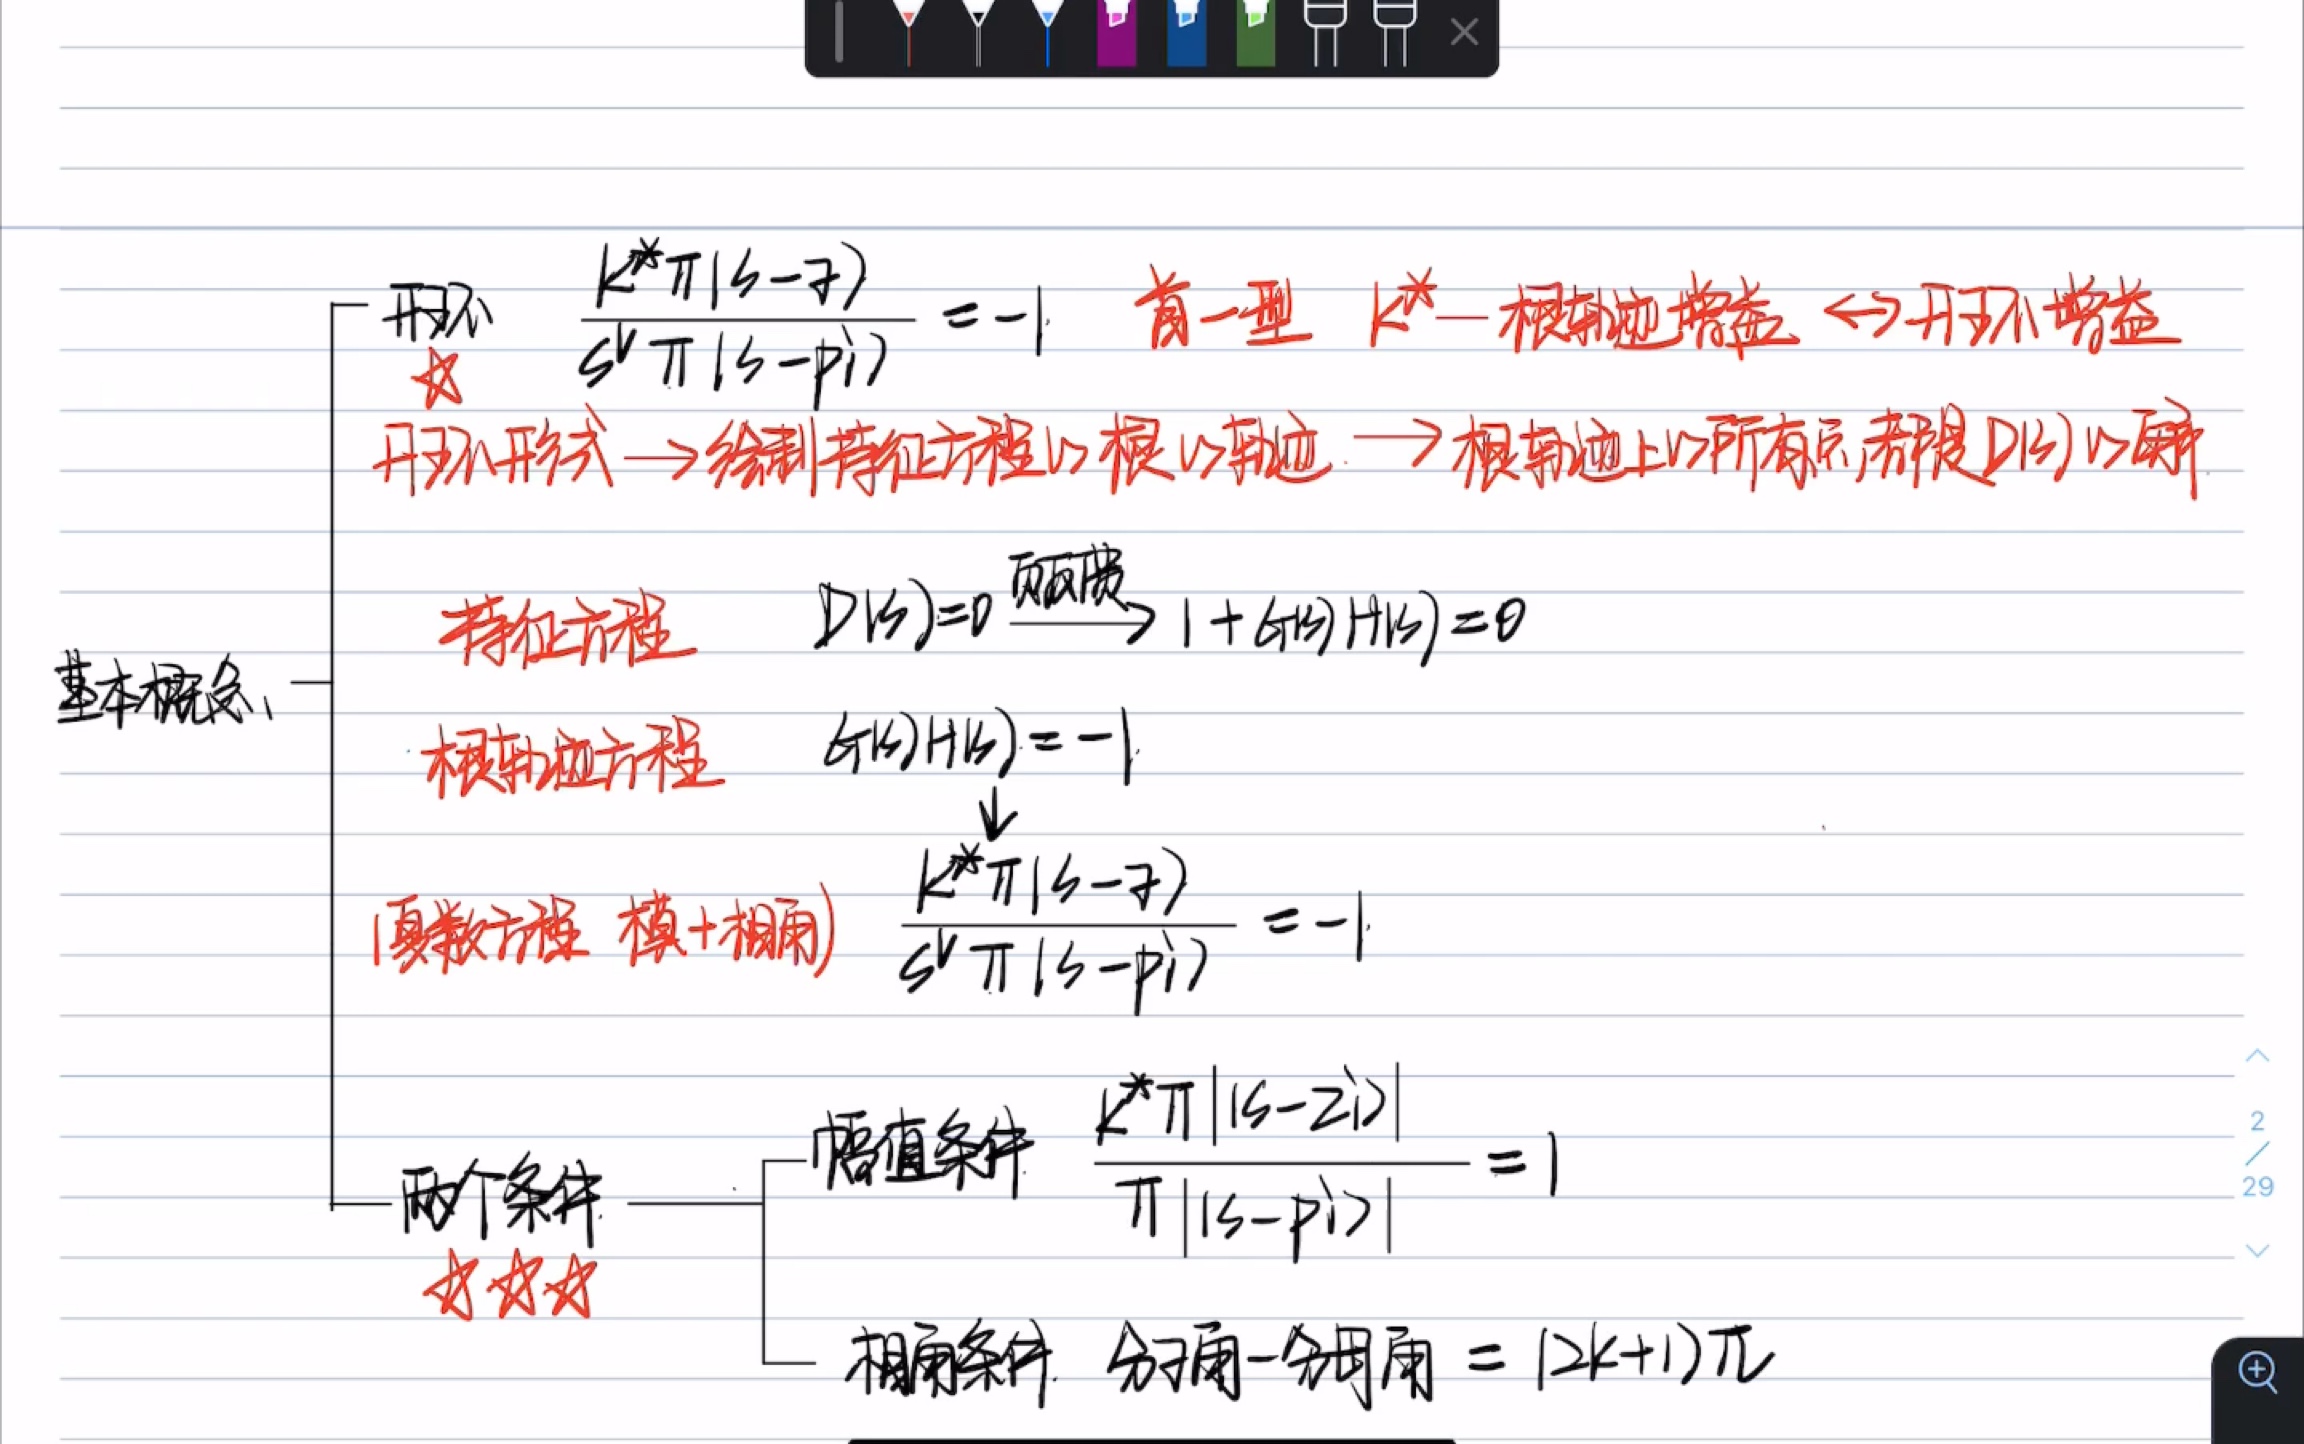 开环 K*π(s-z) / s^ν π(s-pi) = -1 首一型 K* — 根轨迹增益 ↔ 开环增益
☆
开环形式 → 绘制特征方程的根的轨迹 → 根轨迹上的所有点,都是D(s)的解
特征方程 D(s)=0 负反馈→ 1+G(s)H(s)=0
基本概念
根轨迹方程 G(s)H(s)=-1
↓
(复数方程 模+相角) K*π(s-z) / s^ν π(s-pi) = -1
两个条件
☆☆☆
幅值条件 K*π|(s-zi)| / π|(s-pi)| = 1
相角条件 分子角-分母角 = (2k+1)π
2
/
29